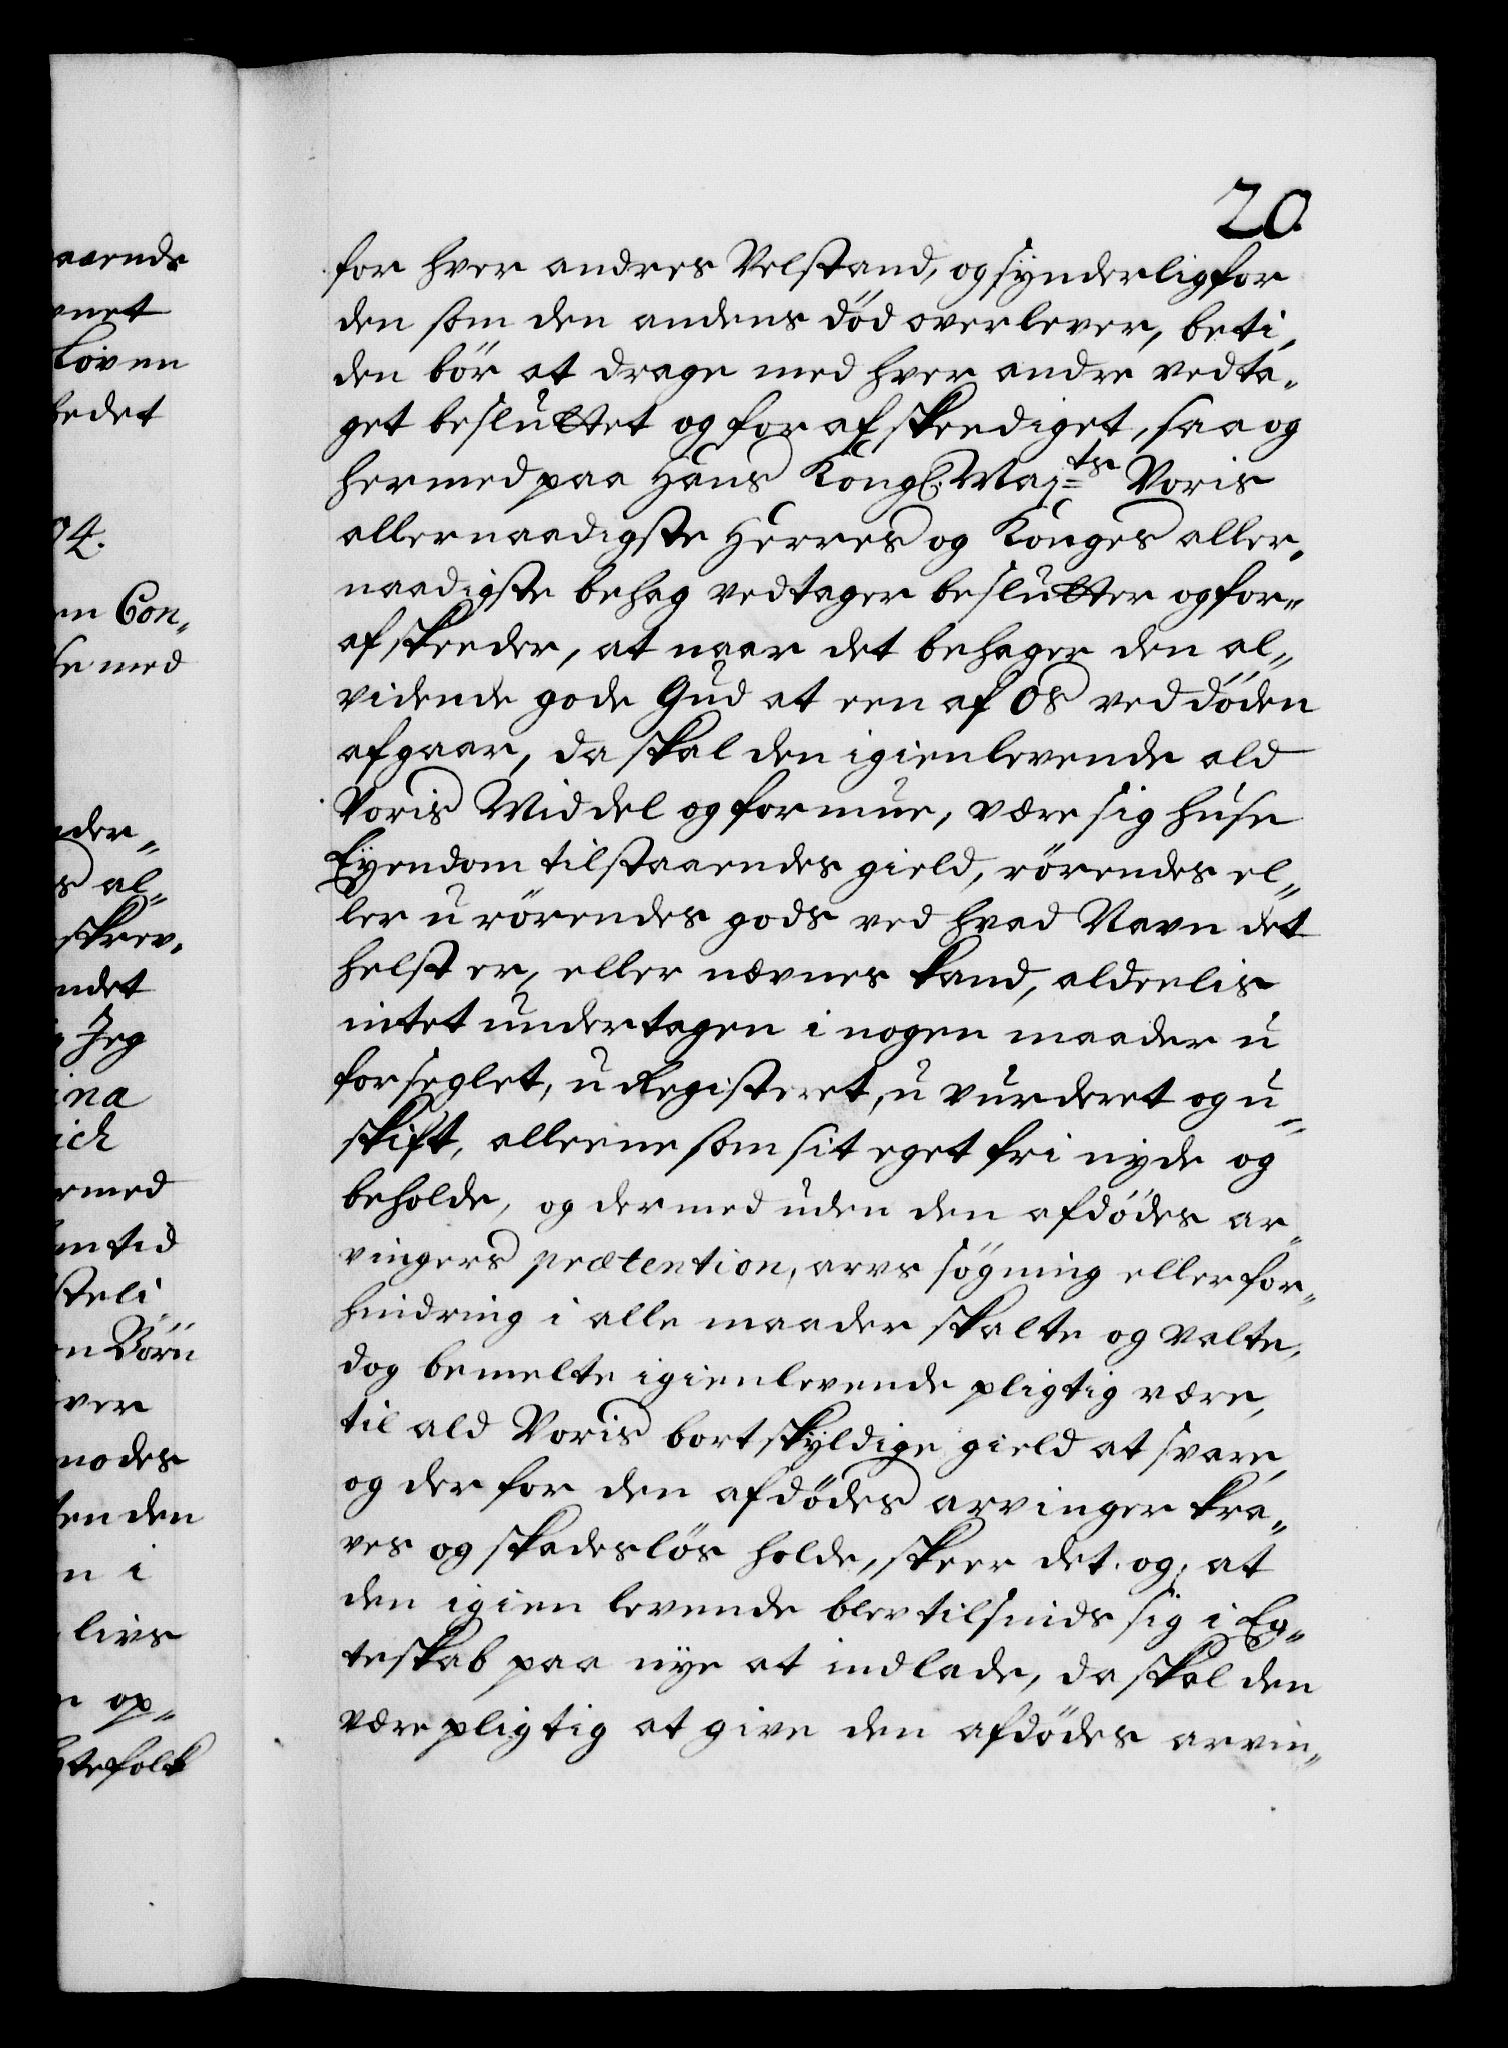 20.
for hver andres Velstand, og synderlig for
den som den andens død overlever, beti,
den bör at drage med hver andre vedta„
get besluttet og for afskeediget, saa og
hermed paa Hans Kongl: Maj=ts Voris
allernaadigste Herres og Konges aller„
naadigste behag vedtager beslutter og for„
afskeeder, at naar det behager den al„
vidende gode Gud at een af Os ved døden
afgaar, da skal den igienlevende ald
Voris Middel og formue, være sig huse
Eyendom tilstaaendes gield, rörendes el„
ler u rörendes gods ved hvad Navn det
helst er, eller nævnes kand, aldeelis
intet undertagen i nogen maader u
forseglet, u Registeret, u vurderet og u„
skift, alleene som sit eget fri nyde og
beholde, og dermed uden den afdödes ar„
vingers prætention, arvs sögning eller for„
hindring i alle maader skalte og valte,
dog bemelte igienlevende pligtig være,
til ald Voris bortskyldige gield at svare,
og der for den afdödes arvinger kra„
ves og skadeslös holde, skeer det og, at
den igien levende blev tilsinds sig i Eg„
teskab paa nye at indlade, da skal den
være pligtig at give den afdödes arvin„
aarende
net
Loven
hedet
94.
en Con„
se med
der„
s al„
skrev„
ndet
Jeg
ina
ich
rmed
mtid
steli
n Börn
ver
nodes
en den
n i
livs
op„
gtefolk